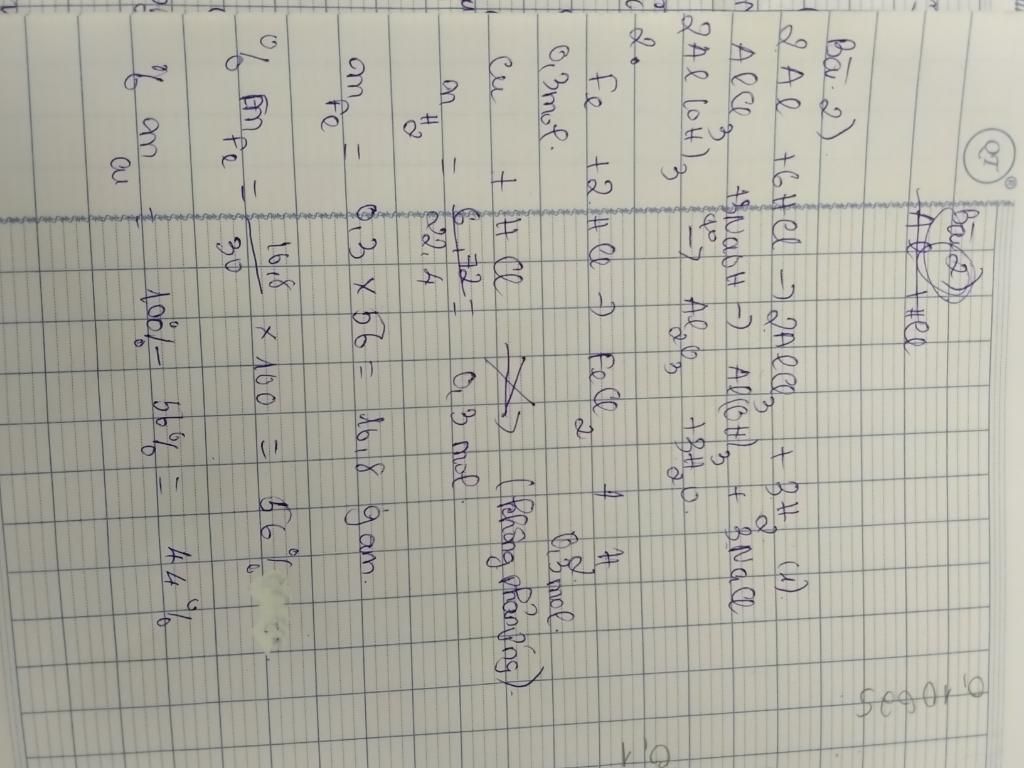 Bài 2)
Al + HCl
Bài 2)
2Al + 6HCl -> 2AlCl3 + 3H2 (1)
AlCl3 + 3NaOH -> Al(OH)3 + 3NaCl
2Al(OH)3 t° -> Al2O3 + 3H2O.
2.
Fe + 2HCl -> FeCl2 + H2
0,3mol. 0,3mol.
Cu + HCl -> (không phản ứng).
n H2 = 6,72 / 22,4 = 0,3 mol.
m Fe = 0,3 x 56 = 16,8 gam.
% m Fe = 16,8 / 30 x 100 = 56%
% m Cu = 100% - 56% = 44%
0,10695
0,1